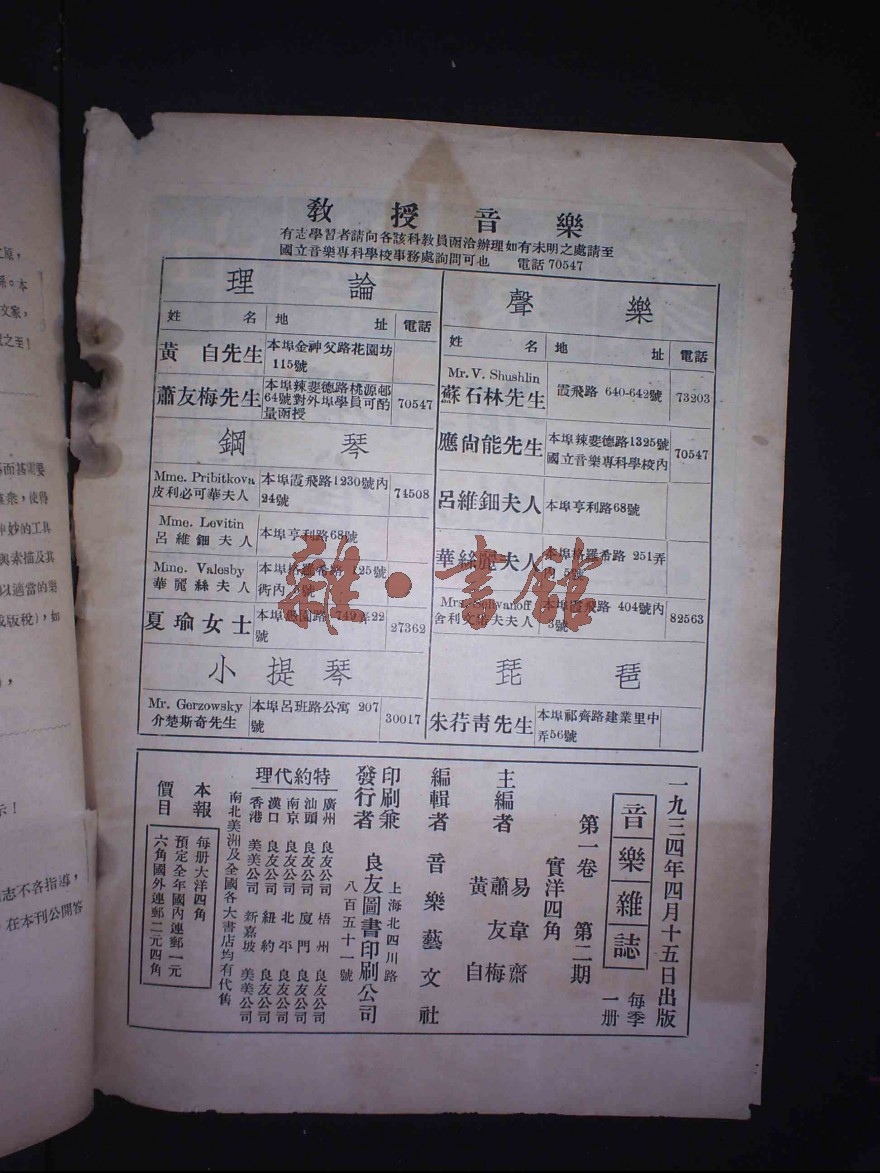 教授音樂
有志學習者請向各該科教員函洽辦理如有未明之處請至
國立音樂專科學校事務處詢問可也 電話 70547
理論
姓名 地址 電話
黃自先生 本埠金神父路花園坊
115號
蕭友梅先生 本埠辣斐德路桃源邨
64號對外埠學員可酌
量函授 70547
鋼琴
Mme. Pribitkova
皮利必可華夫人 本埠霞飛路1230號內
24號 74508
Mme. Levitin
呂維鈿夫人 本埠亨利路68號
Mme. Valesby
華麗絲夫人 本埠格羅希路 125號
衖內 5號
夏瑜女士 本埠愚園路 749弄22
號 27362
小提琴
Mr. Gerzowsky
介楚斯奇先生 本埠呂班路公寓 207
號 30017
聲樂
姓名 地址 電話
Mr. V. Shushlin
蘇石林先生 霞飛路 640-642號 73203
應尚能先生 本埠辣斐德路1325號
國立音樂專科學校內 70547
呂維鈿夫人 本埠亨利路68號
華絲麗夫人 本埠格羅希路 251弄
內 5號
Mrs. Selivanoff
舍利文諾夫夫人 本埠霞飛路 404號內
3號 82563
琵琶
朱荇青先生 本埠祁齊路建業里中
弄56號
一九三四年四月十五日出版
音樂雜誌
每季
一册
第一卷 第二期
實洋四角
主編者
易韋齋
蕭友梅
黃自
編輯者 音樂藝文社
印刷兼
發行者 良友圖書印刷公司
上海北四川路
八百五十一號
特約代理
廣州 良友公司 梧州 良友公司
汕頭 良友公司 廈門 良友公司
南京 良友公司 北平 良友公司
漢口 良友公司 紐約 良友公司
香港 美美公司 新嘉坡 美美公司
南北美洲及全國各大書店均有代售
本報
價目
每册大洋四角
預定全年國內連郵一元
六角國外連郵二元四角
之至！
文家，
而甚
使得
妙的工具
與素描及其
以適當的
成版稅），如
示！
志不吝指導，
在本刊公開答
雜·書館